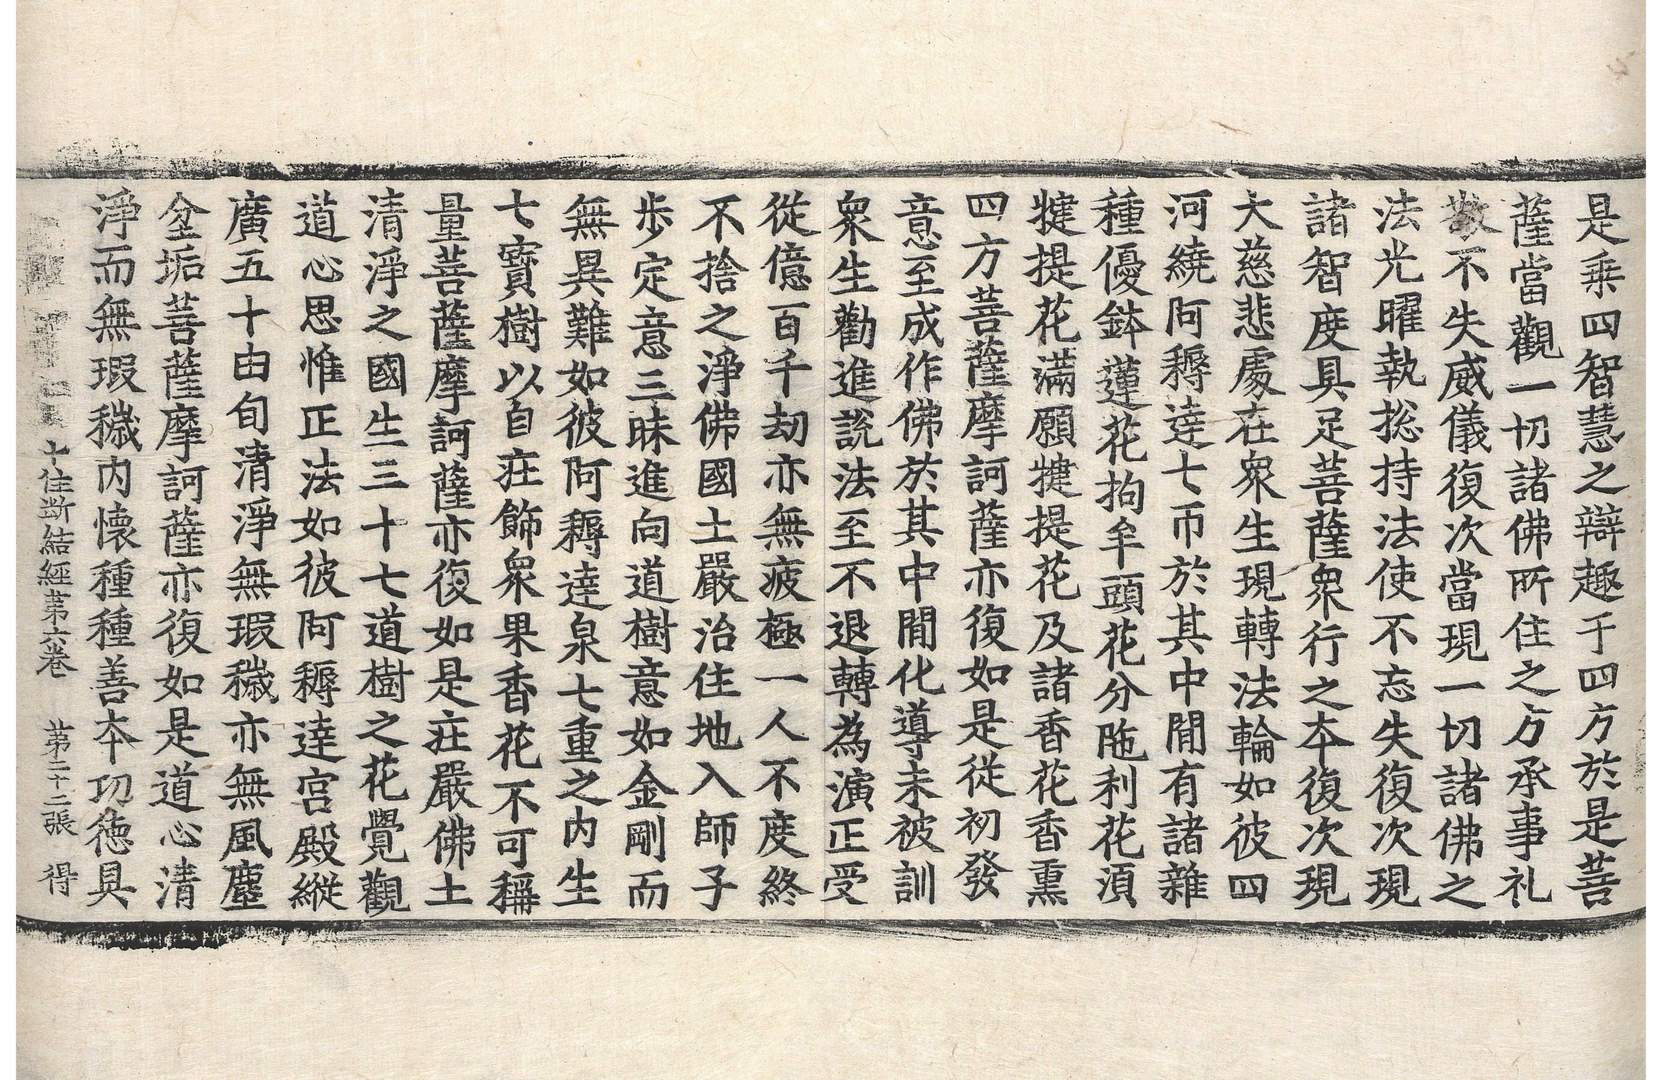 是乘四智慧之辯趣于四方於是菩
薩當觀一切諸佛所住之方承事礼
敬不失威儀復次當現一切諸佛之
法光曜執捴持法使不忘失復次現
諸智度具足菩薩衆行之夲復次現
大慈悲處在衆生現轉法輪如彼四
河繞阿耨達七帀於其中閒有諸雜
種優鉢蓮花拘牟頭花分陁利花湏
揵提花滿願揵提花及諸香花香熏
四方菩薩摩訶薩亦復如是從初發
意至成作佛於其中閒化導未被訓
衆生勸進說法至不退轉為演正受
從億百千劫亦無疲極一人不度終
不捨之淨佛國土嚴治住地入師子
步定意三昧進向道樹意如金剛而
無異難如彼阿耨達泉七重之内生
七寶樹以自莊飾衆果香花不可稱
量菩薩摩訶薩亦復如是莊嚴佛土
清淨之國生三十七道樹之花覺觀
道心思惟正法如彼阿耨達宫殿縱
廣五十由旬清淨無瑕穢亦無風塵
坌垢菩薩摩訶薩亦復如是道心清
淨而無瑕穢内懷種種善夲功德具
十住斷結經第六卷 第二十二張 得